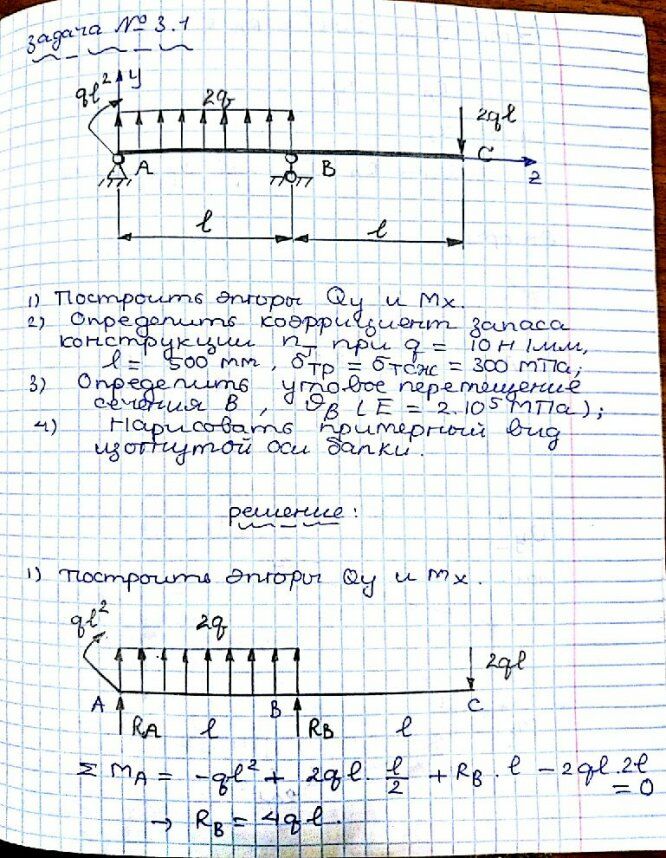 задача № 3.1
ql² y
2q
2ql
A B C z
l l
1) Построить эпюры Qy и Mx.
2) Определить коэффициент запаса
конструкции nт при q = 10 н/мм,
l = 500 mm, σтр = σтсж = 300 МПа;
3) Определить угловое перемещение
сечения B, ϑB (E = 2.10⁵ МПа);
4) Нарисовать примерный вид
изогнутой оси балки.
решение:
1) Построить эпюры Qy и Mx.
ql² 2q
2ql
A B C
RA l RB l
Σ MA = -ql² + 2ql · l/2 + RB · l - 2ql · 2l
= 0
→ RB = 4ql.